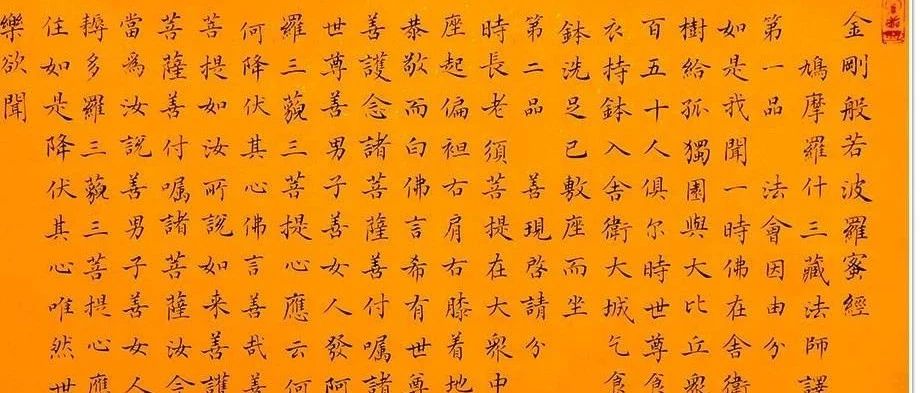 金剛般若波羅蜜經
鳩摩羅什三藏法師譯
第一品 法會因由分
如是我聞一時佛在舍衛
樹給孤獨園與大比丘眾
百五十人俱尔時世尊食
衣持鉢入舍衛大城乞食
鉢洗足已敷座而坐
第二品 善現啓請分
時長老須菩提在大眾中
座起偏袒右肩右膝着地
恭敬而白佛言希有世尊
善護念諸菩薩善付囑諸
世尊善男子善女人發阿
羅三藐三菩提心應云何
何降伏其心佛言善哉善
菩提如汝所說如来善護
菩薩善付囑諸菩薩汝今
當爲汝說善男子善女人
耨多羅三藐三菩提心應
住如是降伏其心唯然世
樂欲聞